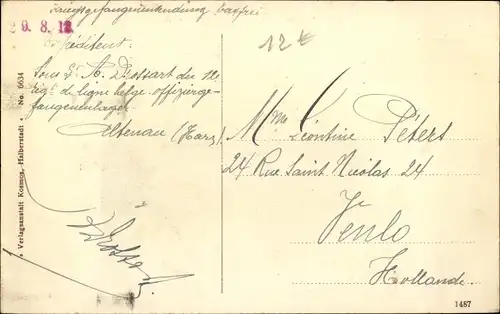 Kriegsgefangenensendung
9.8.18
12€
Expéditeur:
Sous Lt A. Drossart du 12e
rigt de ligne belge offizierge-
fangenenlager
Altenau (Harz)
Mme Léontine Péters
24 Rue Saint Nicolas 24
Venlo
Hollande.
Drossart
Verlagsanstalt Kosmos, Halberstadt No. 6634
1487